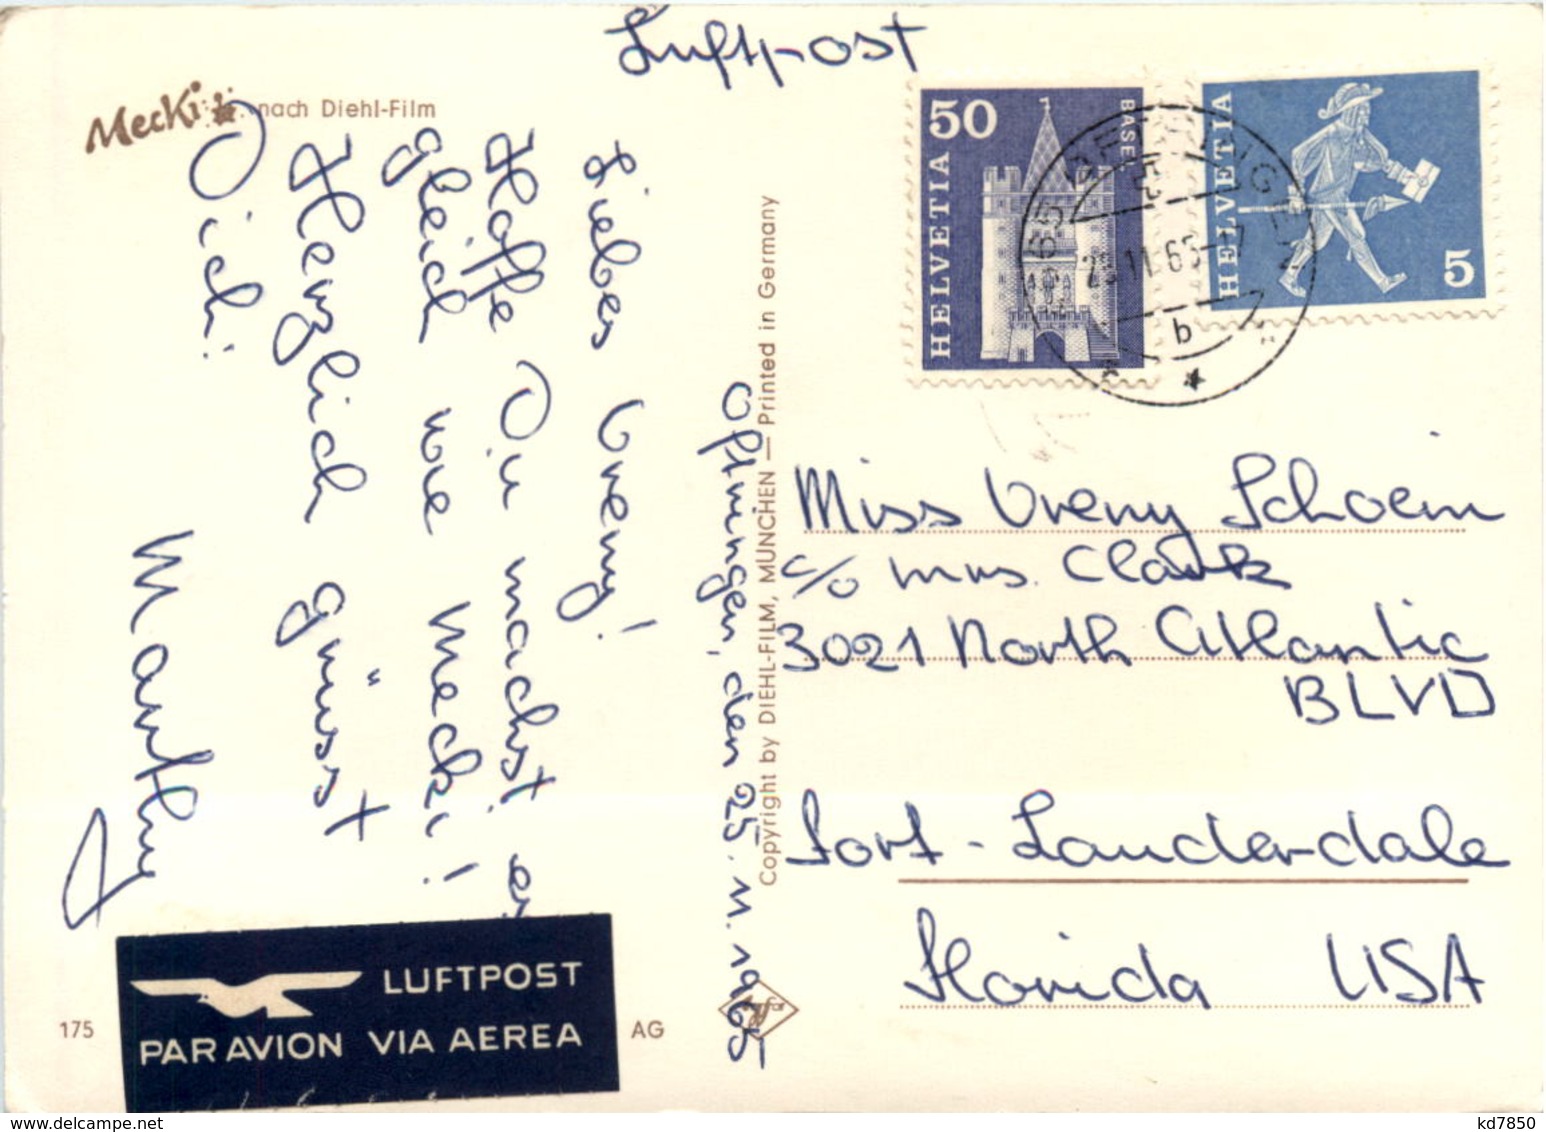 Luftpost
Mecki
nach Diehl-Film
Oftringen, den 25. 11. 1965
Liebes Vreny!
Hoffe Du machst es
gleich wie Mecki!
Herzlich grüsst
Dich:
Marthy
Copyright by DIEHL-FILM, MÜNCHEN — Printed in Germany
50
HELVETIA
BASEL
HELVETIA
5
b
Miss Vreny Schoeni
c/o Mrs. Clark
3021 North Atlantic
BLVD
Fort-Lauderdale
Florida USA
LUFTPOST
PAR AVION VIA AEREA
175
AG
delcampe.net
kd7850